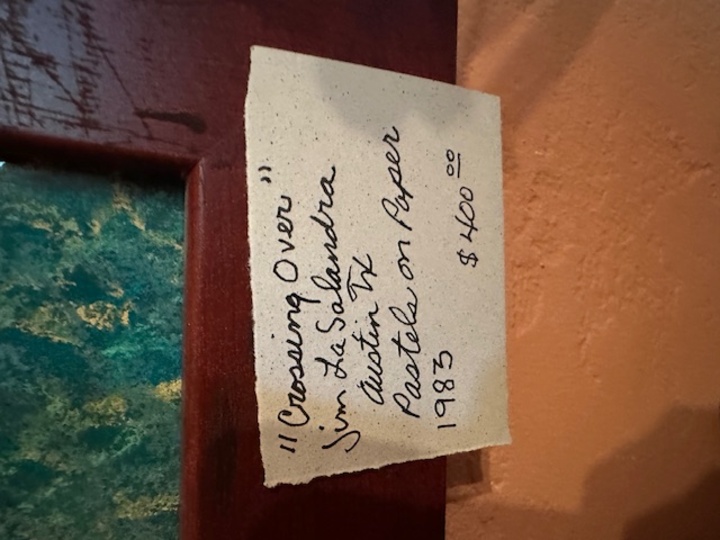 "Crossing Over"
Jim La Salandra
Austin Tx
Pastels on Paper
1983
$400.00